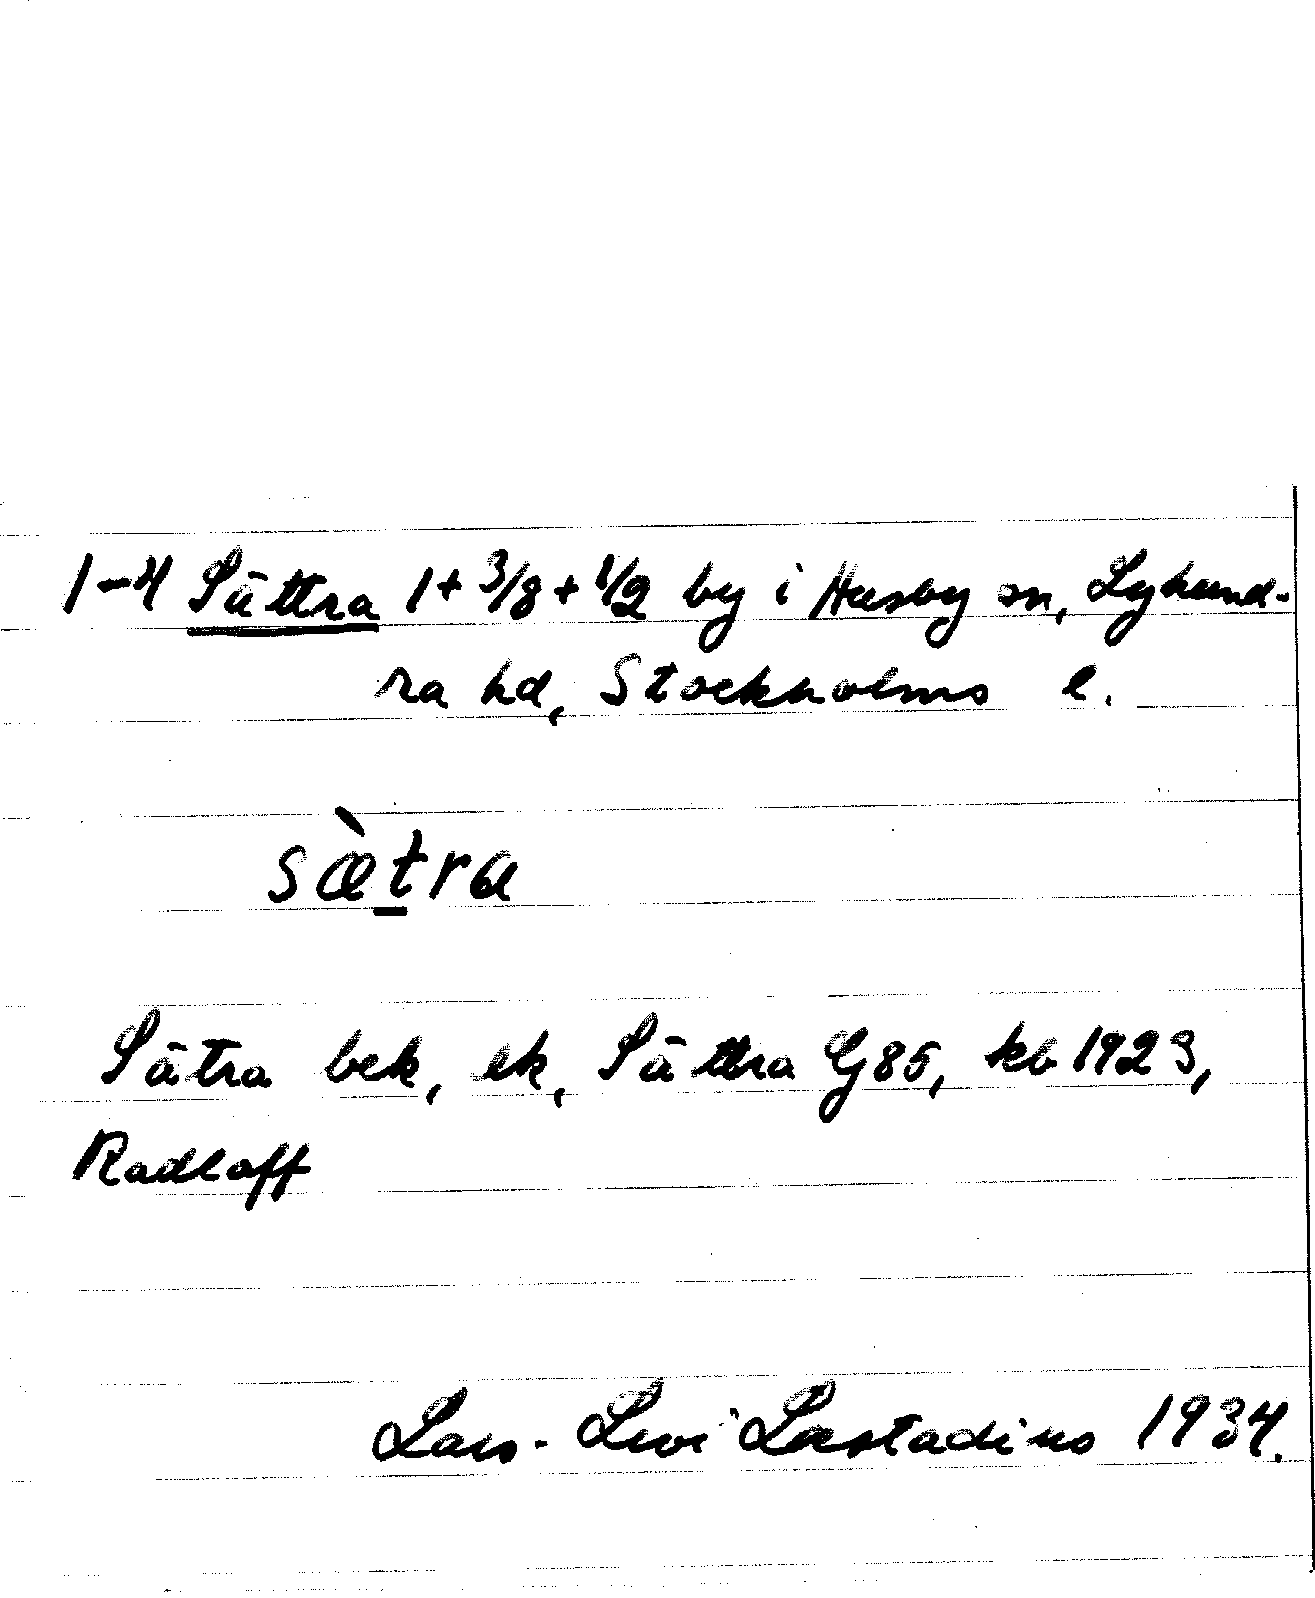 1-4 Sättra 1+3/8+1/2 by i Husby sn, Lyhund-
ra hd, Stockholms l.
sæ̀tra
Sätra bek, ek, Sättra G85, kb 1923,
Radloff
Lars-Levi Læstadius 1934.